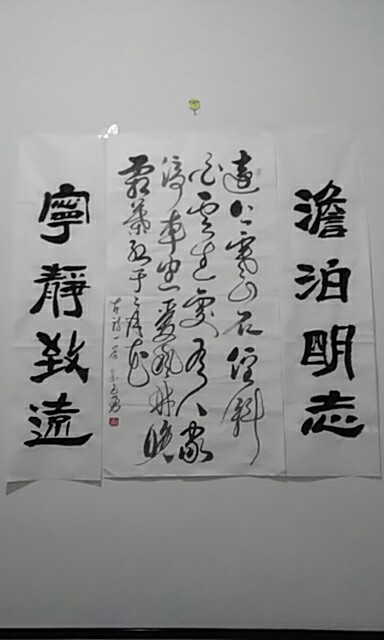 澹泊明志
遠上寒山石徑斜
白雲生處有人家
停車坐愛楓林晚
霜葉紅于二月花
古詩一首
寧靜致遠